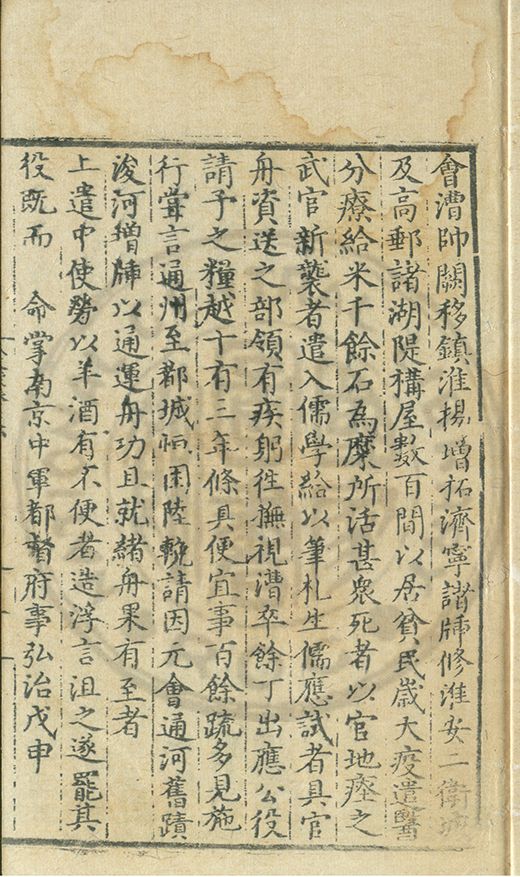 會漕帥闕移鎮淮揚增拓濟寧諸牐修淮安二衛城
及高郵諸湖隄搆屋數百間以居貧民歲大疫遣醫
分療給米千餘石為糜所活甚衆死者以官地瘞之
武官新襲者遣入儒學給以筆札生儒應試者具官
舟資送之部領有疾躬徃撫視漕卒餘丁出應公役
請予之糧越十有三年條具便宜事百餘疏多見施
行甞言通州至都城恒困陸輓請因元會通河舊蹟
浚河增牐以通運舟功且就緒舟果有至者
上遣中使勞以羊酒有不便者造浮言沮之遂罷其
役既而 命掌南京中軍都督府事弘治戊申